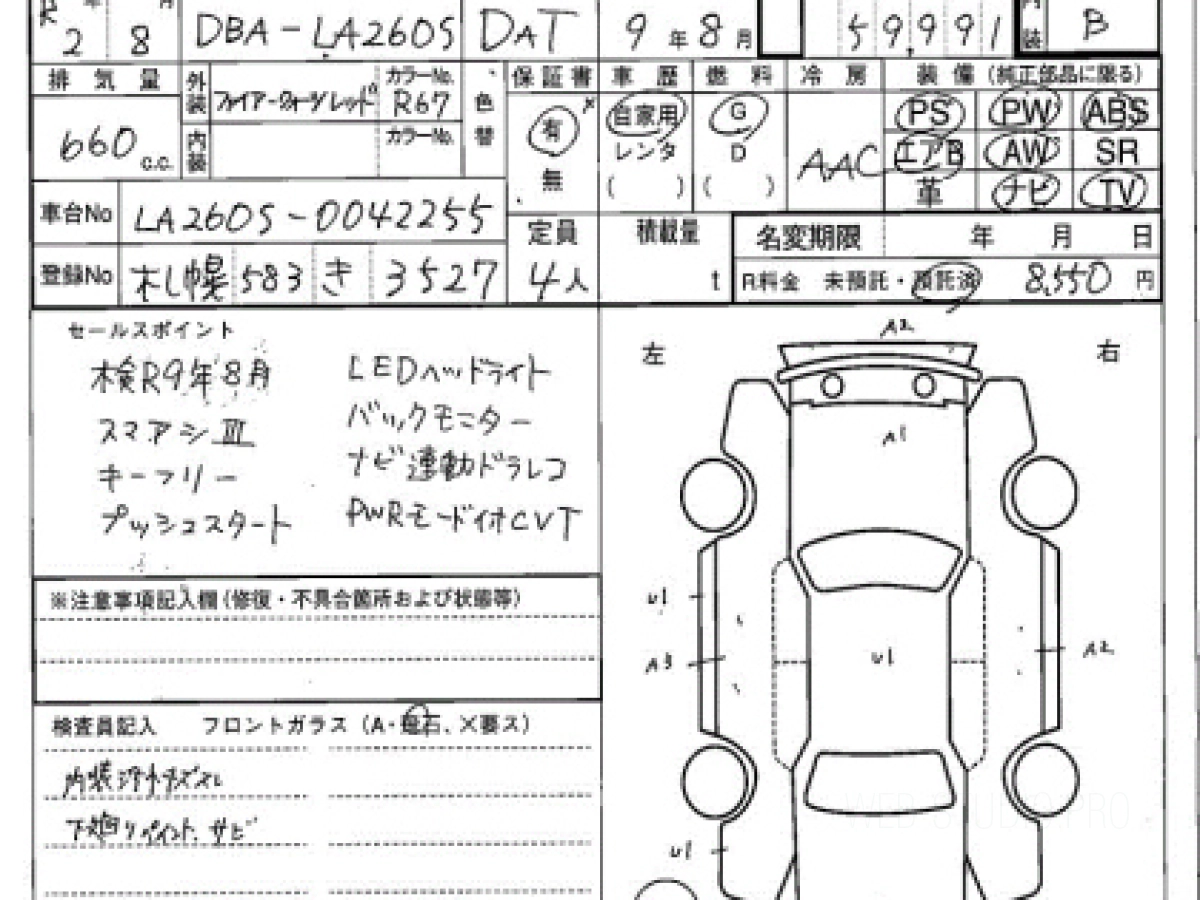 R 2 年 8 月 DBA-LA260S DAT 9年8月 59,991 内装 B
排気量 外装 ファイアークォーツレッド カラーNo. R67 色替 保証書 車歴 燃料 冷房 装備 (純正部品に限る)
660 c.c. 内装 カラーNo. 有 自家用 G AAC PS PW ABS
レンタ D エアB AW SR
無 ( ) ( ) 革 ナビ TV
車台No LA260S-0042255 定員 積載量 名変期限 年 月 日
登録No 札幌 583 き 3527 4人 t R料金 未預託・預託済 8,550 円
セールスポイント
検R9年8月 LEDヘッドライト
スマアシⅢ バックモニター
キーフリー ナビ連動ドラレコ
プッシュスタート PWRモード付CVT
※注意事項記入欄(修復・不具合箇所および状態等)
検査員記入 フロントガラス (A・飛石、X要ス)
内装
下廻りペイント、サビ
左 A2 右
A1
U1
A3 U1 A2
U1